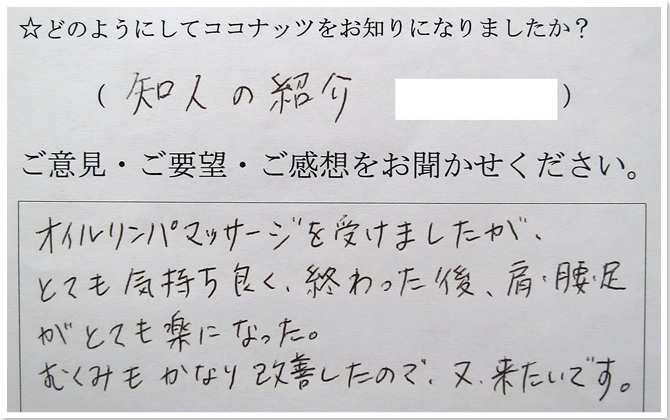 ☆どのようにしてココナッツをお知りになりましたか？
（ 知人の紹介 ）
ご意見・ご要望・ご感想をお聞かせください。
オイルリンパマッサージを受けましたが、
とても気持ち良く、終わった後、肩・腰・足
がとても楽になった。
むくみもかなり改善したので、又、来たいです。